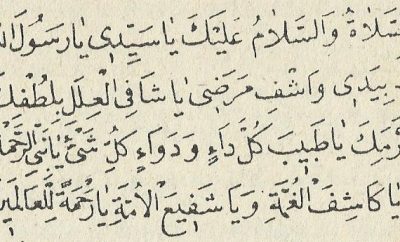 لصَّلَاةُ وَالسَّلَامُ عَلَيْكَ يَا سَيِّدِى يَا رَسُولَ
بِيَدِى وَاشْفِ مَرَضِى يَا شَافِىَ الْعِلَلِ بِلُطْفِكَ
يَا طَبِيبَ كُلِّ دَاءٍ وَدَوَاءِ كُلِّ شَىْءٍ يَا نَبِىَّ الرَّحْمَةِ
يَا كَاشِفَ الْغُمَّةِ وَيَا شَفِيعَ الْأُمَّةِ يَا رَحْمَةً لِّلْعَالَمِينَ